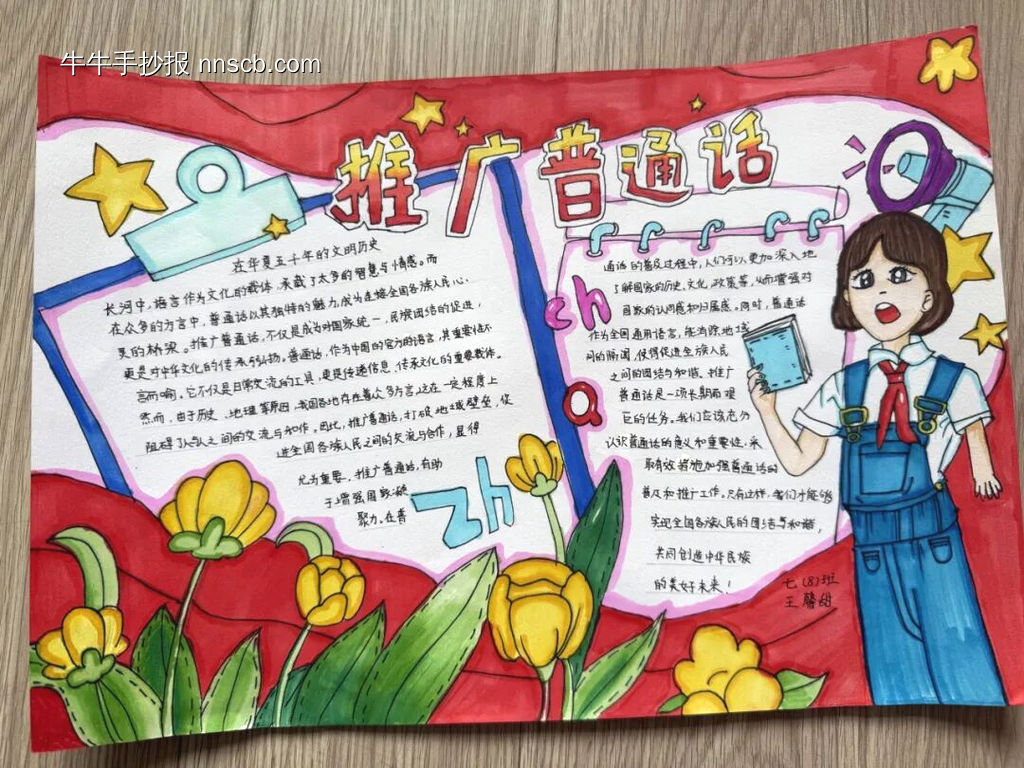 牛牛手抄报 nnscb.com
推广普通话
在华夏五千年的文明历史
长河中，语言作为文化的载体，承载了太多的智慧与情感。而
在众多的方言中，普通话以其独特的魅力，成为连接全国各族人民心
灵的桥梁。推广普通话，不仅是成为对国家统一，民族团结的促进，
更是对中华文化的传承与弘扬。普通话，作为中国的官方的语言，其重要性不
言而喻，它不仅是日常交流的工具，更是传递信息，传承文化的重要载体。
然而，由于历史、地理等原因，我国各地存在着众多方言，这在一定程度上
阻碍了人与人之间的交流与和作。因此，推广普通话，打破地域壁垒，促
进全国各族人民之间的交流与合作，显得
尤为重要。推广普通话，有助
于增强国家凝
聚力。在普
zh
ch
a
通话的普及过程中，人们可以更加深入地
了解国家的历史、文化、政策等，从而增强对
国家的认同感和归属感。同时，普通话
作为全国通用语言，能消除地域
间的隔阂，使得促进各族人民
之间的团结与和谐。推广
普通话是一项长期而艰
巨的任务。我们应该充分
认识普通话的意义和重要性，采
取有效措施加强普通话的
普及和推广工作。只有这样，我们才能够
实现全国各族人民的团结与和谐，
共同创造中华民族
的美好未来！
七（8）班
王馨甜